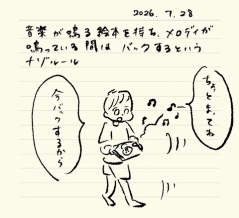 2026.7.28
音楽が鳴る絵本を持ち、メロディが
鳴っている間はバックするという
ナゾルール
ちょっとまってね
今バックするから